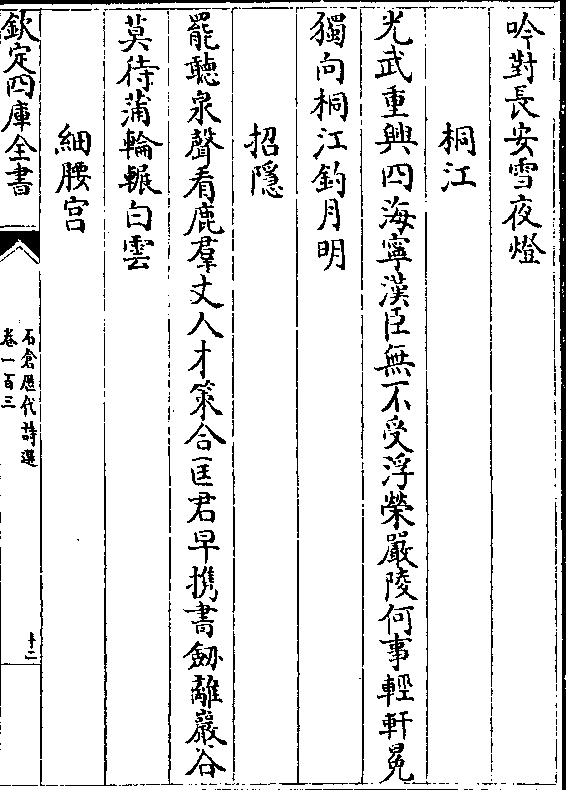 吟對長安雪夜燈
桐江
光武重興四海寧漢臣無不受浮榮嚴陵何事輕軒冕
獨向桐江釣月明
招隱
罷聽泉聲看鹿羣丈人才策合匡君早携書劒離巖谷
莫待蒲輪輾白雲
細腰宫
欽定四庫全書
石倉歴代詩選
卷一百三
十二